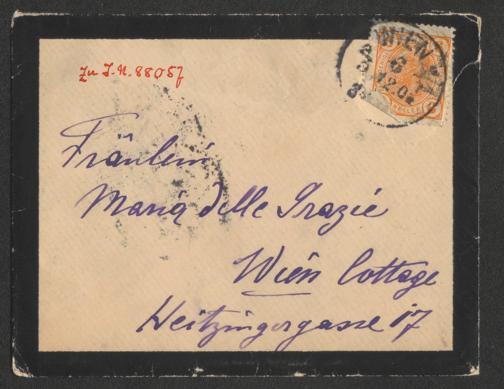 Zu I.N. 88057
WIEN
6
12.04
Fräulein
Maria delle Grazie
Wien Cottage
Heitzingergasse 17